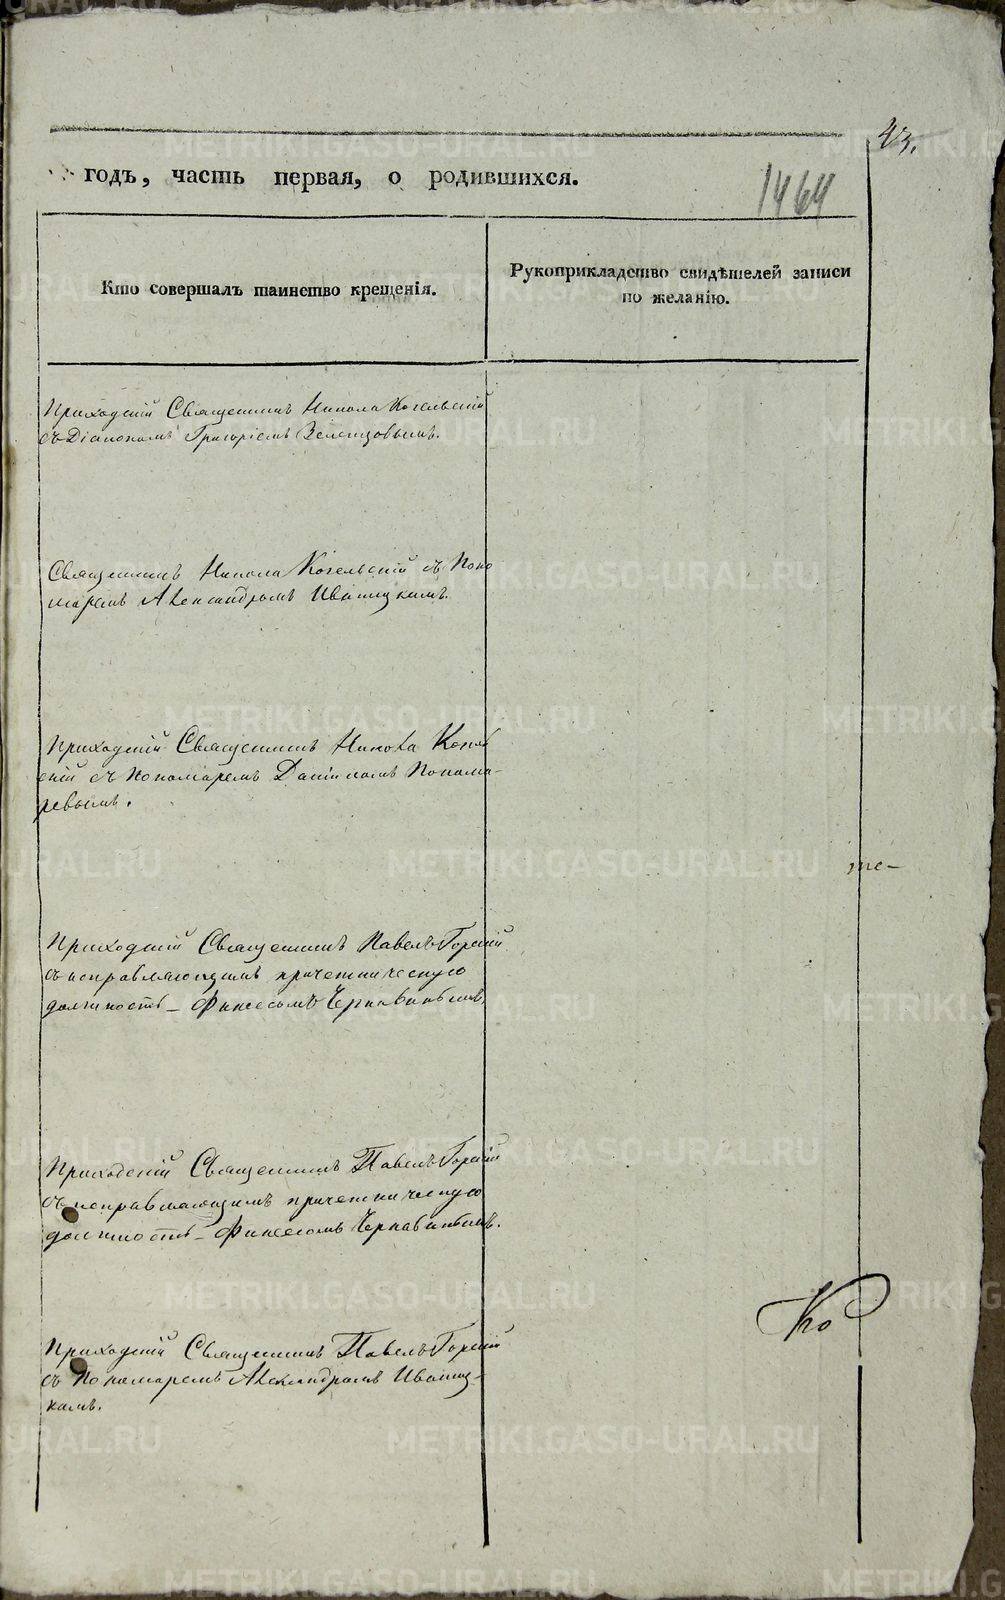 43.
годъ, часть первая, о родившихся.
1464
Кто совершалъ таинство крещенія.
Рукоприкладство свидѣтелей записи
по желанію.
Приходскій Священникъ Никола Когельскій
съ Діакономъ Григоріемъ Зеленцовымъ.
Священникъ Никола Когельскій съ Поно
маремъ Александромъ Иваницкимъ.
Приходскій Священникъ Никола Когель
скій съ Пономаремъ Даніиломъ Понома-
ревымъ.
те-
Приходскій Священникъ Павелъ Горскій
съ исправляющимъ причетническую
должность - Финеесомъ
Приходскій Священникъ Павелъ Горскій
съ исправляющимъ причетническую
должность - Финеесомъ
Ко
Приходскій Священникъ Павелъ Горскій
съ Пономаремъ Александромъ Иваниц-
кимъ.
METRIKI.GASO-URAL.RU